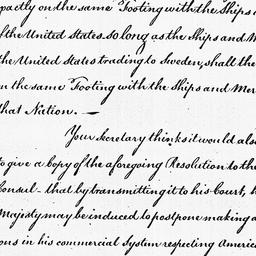 pactly on the same Footing with the Ships
of the United States. so long as the Ships and M
the United States trading to Sweden, shall the
n the same Footing with the Ships and Mer
that Nation. —
Your Secretary thinks it would als
to give a copy of the aforegoing Resolution to th
Consul - that by transmitting it to his Court, h
Majesty may be induced to postpone making a
ons in his commercial System respecting Americ